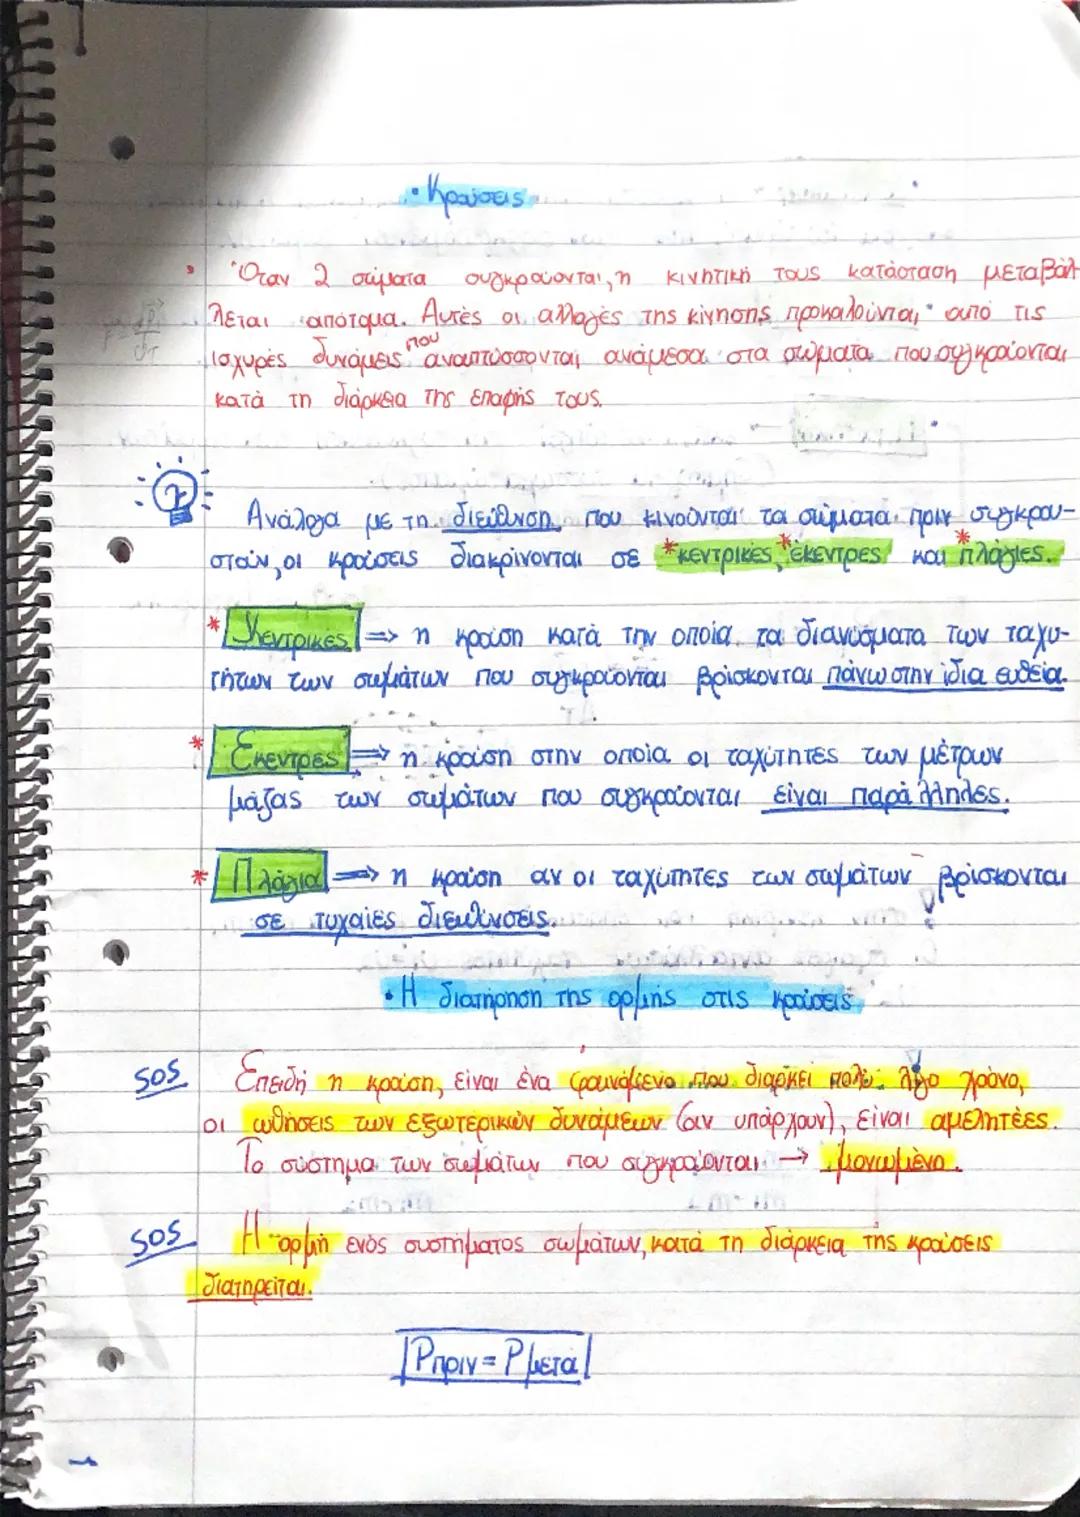 • Κρούσεις
• Όταν 2 σώματα συγκρούονται, η κινητική τους κατάσταση μεταβάλ-
λεται απότομα. Αυτές οι αλλαγές της κίνησης προκαλούνται από τις
ισχυρές δυνάμεις που αναπτύσσονται ανάμεσα στα σώματα που συγκρούονται
κατά τη διάρκεια της επαφής τους.
Ανάλογα με τη διεύθυνση που κινούνται τα σώματα πριν συγκρου-
στούν, οι κρούσεις διακρίνονται σε *κεντρικές, *έκεντρες και *πλάγιες.
* Κεντρικές => η κρούση κατά την οποία τα διανύσματα των ταχυ-
τήτων των σωμάτων που συγκρούονται βρίσκονται πάνω στην ίδια ευθεία.
* Έκεντρες => η κρούση στην οποία οι ταχύτητες των μέτρων
μάζας των σωμάτων που συγκρούονται είναι παράλληλες.
* Πλάγια => η κρούση αν οι ταχύτητες των σωμάτων βρίσκονται
σε τυχαίες διευθύνσεις.
• Η διατήρηση της ορμής στις κρούσεις
SOS Επειδή η κρούση, είναι ένα φαινόμενο που διαρκεί πολύ λίγο χρόνο,
οι ωθήσεις των εξωτερικών δυνάμεων (αν υπάρχουν), είναι αμελητέες.
Το σύστημα των σωμάτων που συγκρούονται → μονωμένο.
SOS Η ορμή ενός συστήματος σωμάτων, κατά τη διάρκεια της κρούσεις
διατηρείται.
Pπριν = Pμετά